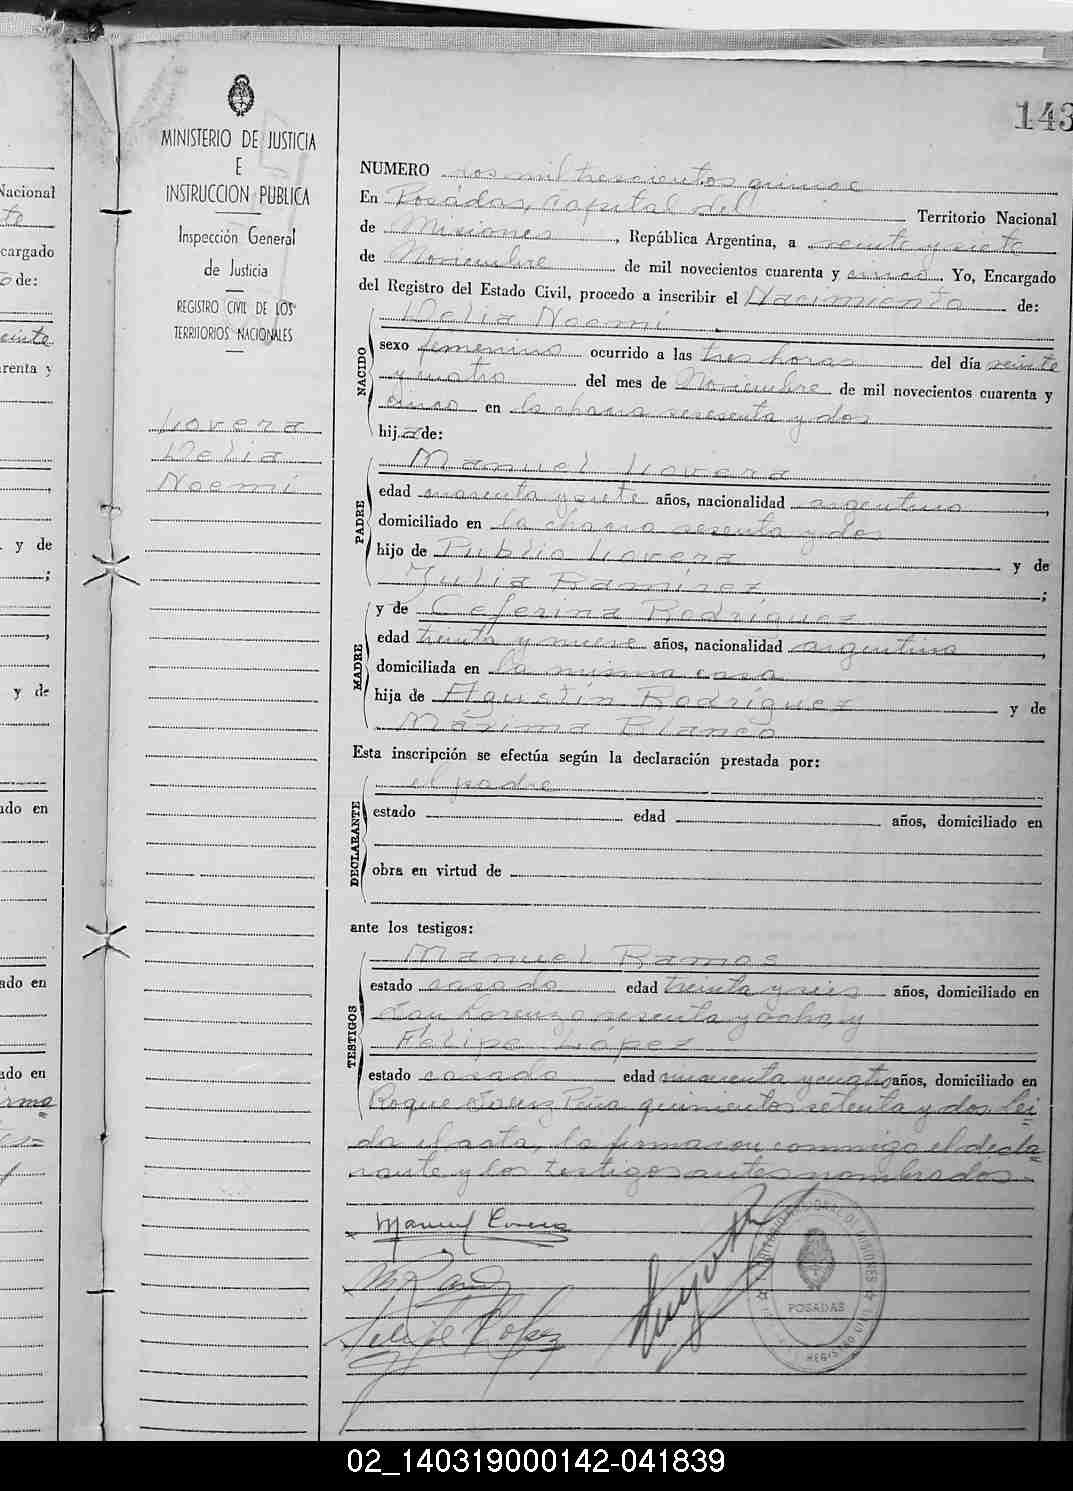 143
MINISTERIO DE JUSTICIA
E
INSTRUCCION PUBLICA
Inspección General
de Justicia
REGISTRO CIVIL DE LOS
TERRITORIOS NACIONALES
Lovera
Delia
Noemí
NUMERO dos mil trescientos quince
En Posadas, Capital del Territorio Nacional
de Misiones, República Argentina, a veinte y siete
de Noviembre de mil novecientos cuarenta y cinco. Yo, Encargado
del Registro del Estado Civil, procedo a inscribir el Nacimiento de:
NACIDO
Delia Noemí
sexo femenino ocurrido a las tres horas del día veinte
y cuatro del mes de Noviembre de mil novecientos cuarenta y
cinco en la chacra sesenta y dos
hija de:
PADRE
Manuel Lovera
edad cuarenta y siete años, nacionalidad argentino,
domiciliado en la chacra sesenta y dos
hijo de Publio Lovera y de
Julia Ramírez;
MADRE
y de Ceferina Rodríguez
edad treinta y nueve años, nacionalidad argentina,
domiciliada en la misma casa
hija de Agustín Rodríguez y de
Máxima Blanco
Esta inscripción se efectúa según la declaración prestada por:
DECLARANTE
el padre
estado edad años, domiciliado en
obra en virtud de
ante los testigos:
TESTIGOS
Manuel Ramos
estado casado edad treinta y seis años, domiciliado en
San Lorenzo sesenta y ocho, y
Felipe López
estado casado edad cuarenta y cuatro años, domiciliado en
Roque Saenz Peña quinientos setenta y dos. Lei
da el acta, la firmaron conmigo el decla
rante y los testigos antes nombrados.
Manuel Lovera
M Ramos
Felipe Lopez
POSADAS
Nacional
cargado
o de:
veinte
renta y
y de
;
,
y de
ado en
ado en
ado en
02_140319000142-041839